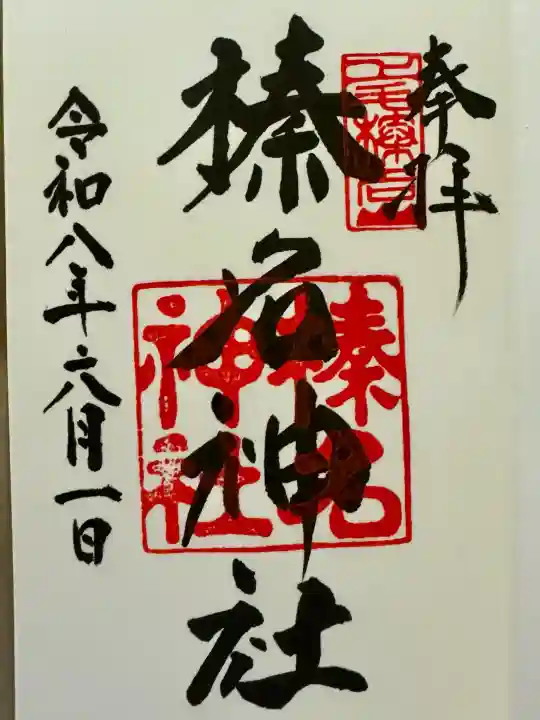 奉拝
榛名神社
榛名神社
令和八年六月一日